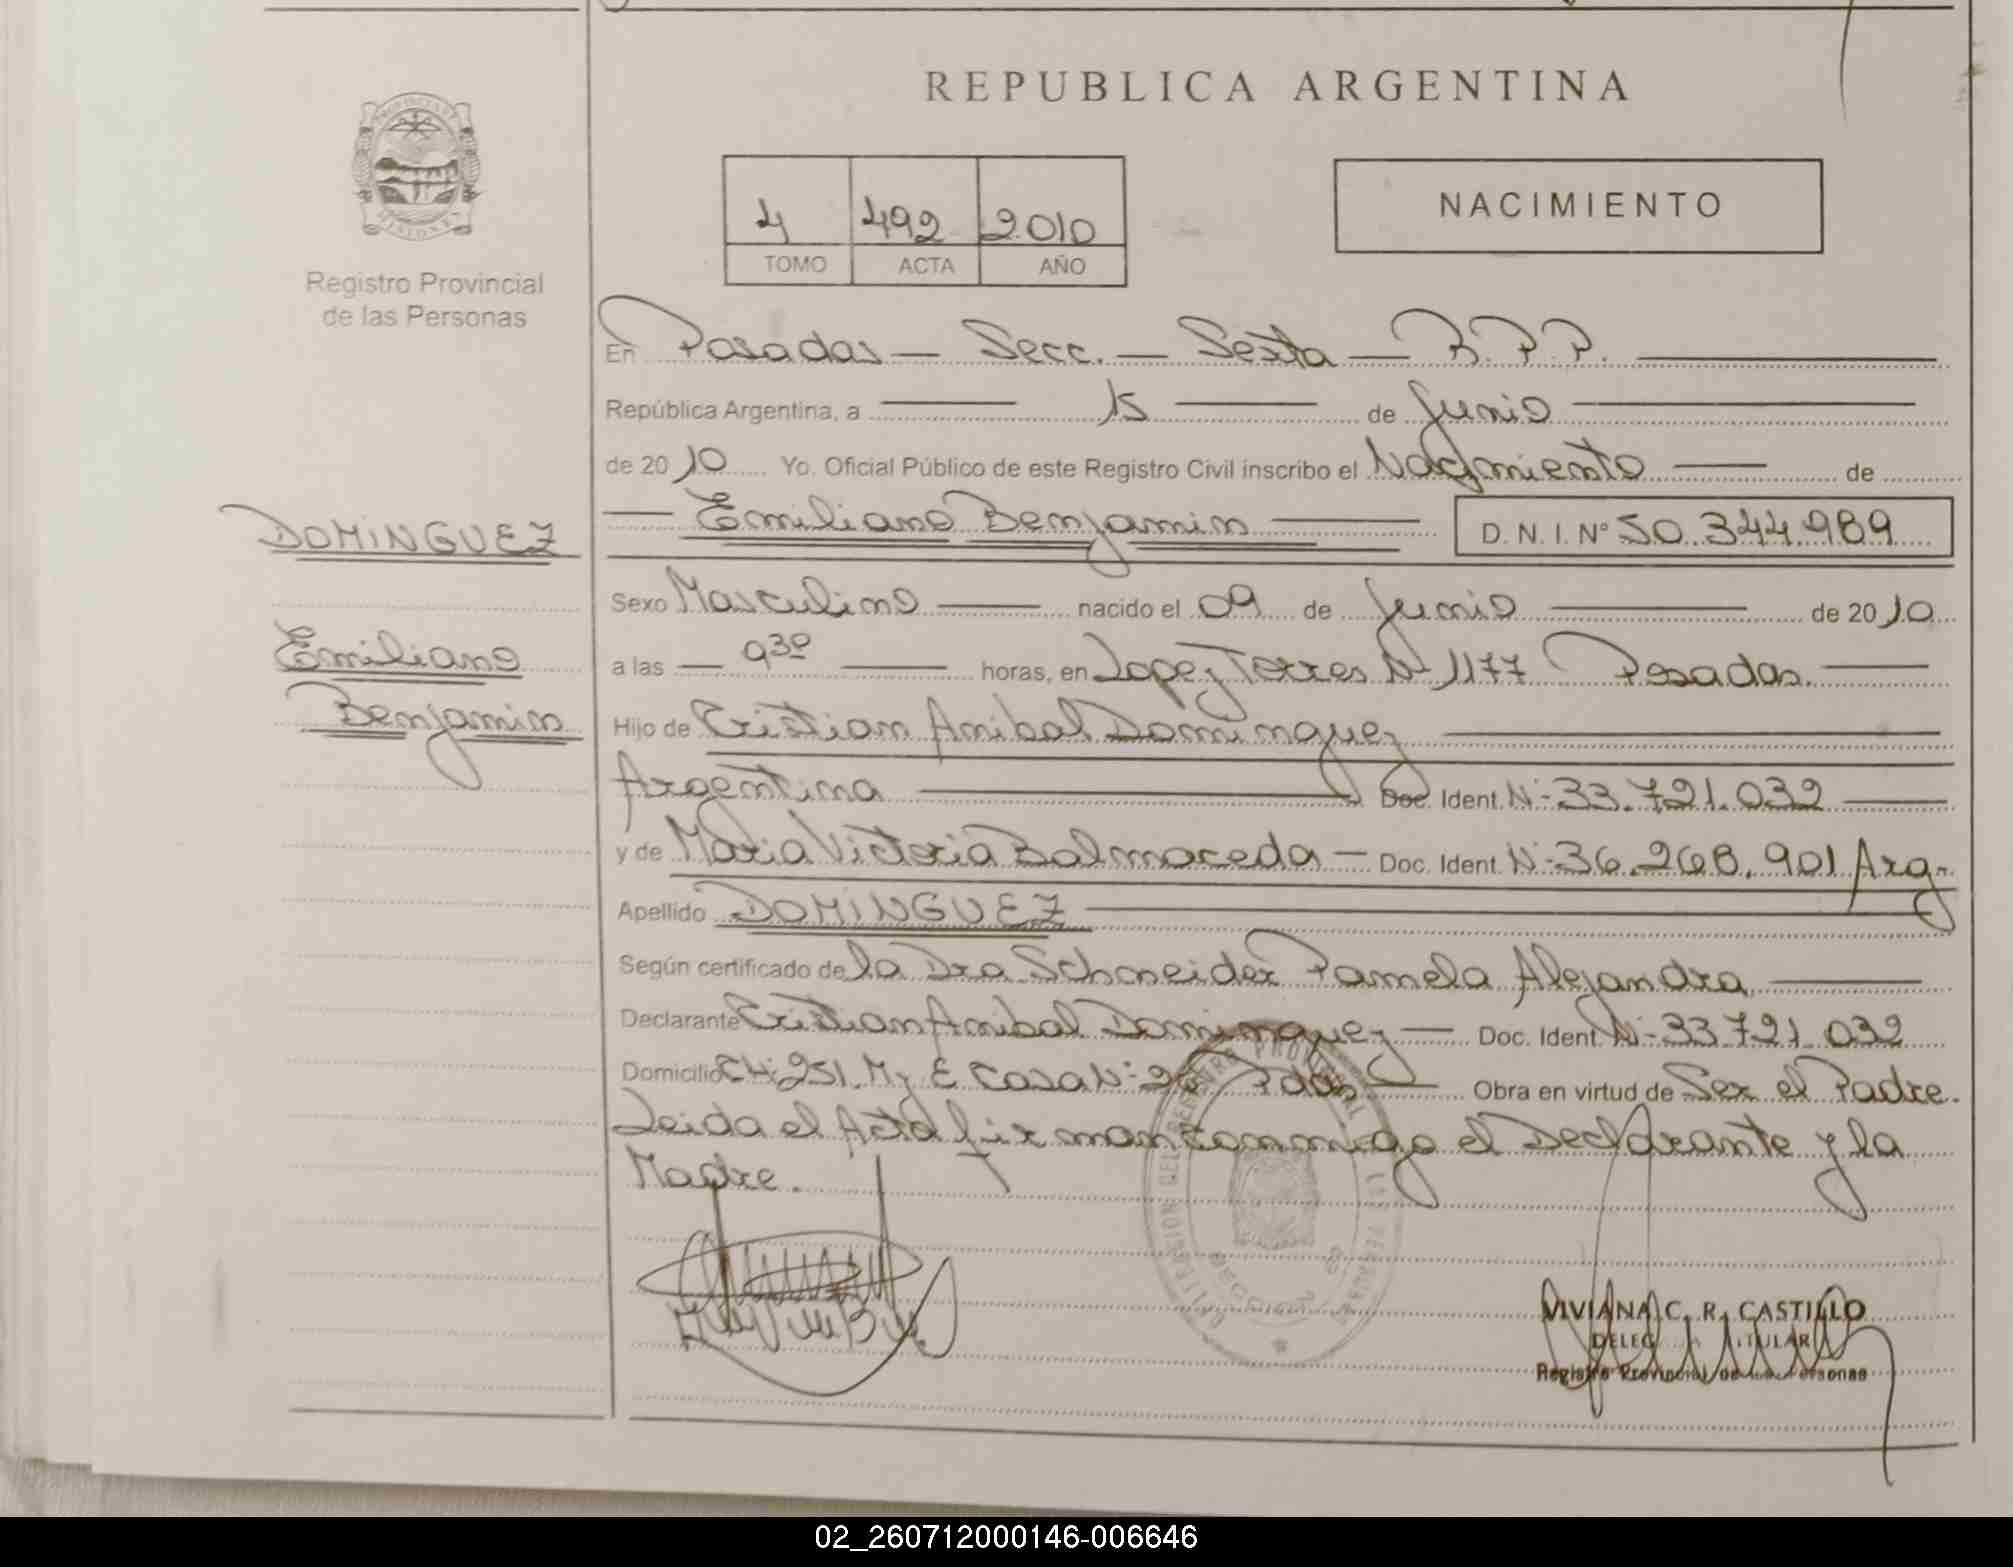 REPUBLICA ARGENTINA
PROVINCIA DE MISIONES
Registro Provincial
de las Personas
4 492 2010
TOMO ACTA AÑO
NACIMIENTO
En Posadas — Secc. — Sexta — R.P.P.
República Argentina, a 15 de Junio
de 2010 Yo. Oficial Público de este Registro Civil inscribo el Nacimiento de
DOMINGUEZ
Emiliano Benjamin D.N.I. Nº 50.344.989
Sexo Masculino nacido el 09 de Junio de 2010
Emiliano
a las 9 30 horas, en Lopez Torres Nº 1177 Posadas.
Benjamin
Hijo de Cristian Anibal Dominguez
Argentina Doc. Ident. Nº 33.721.032
y de Maria Victoria Balmaceda — Doc. Ident. Nº 36.268.901 Arg.
Apellido DOMINGUEZ
Según certificado de la Dra Schneider Pamela Alejandra
Declarante Cristian Anibal Dominguez — Doc. Ident. Nº 33 721 032
Domicilio CH: 251. Mz E Casa Nº Pdas Obra en virtud de Ser el Padre.
Leida el Acta firman conmigo el Declarante y la
Madre.
VIVIANA C. R. CASTILLO
TITULAR
Registro Provincial de las Personas
02_260712000146-006646